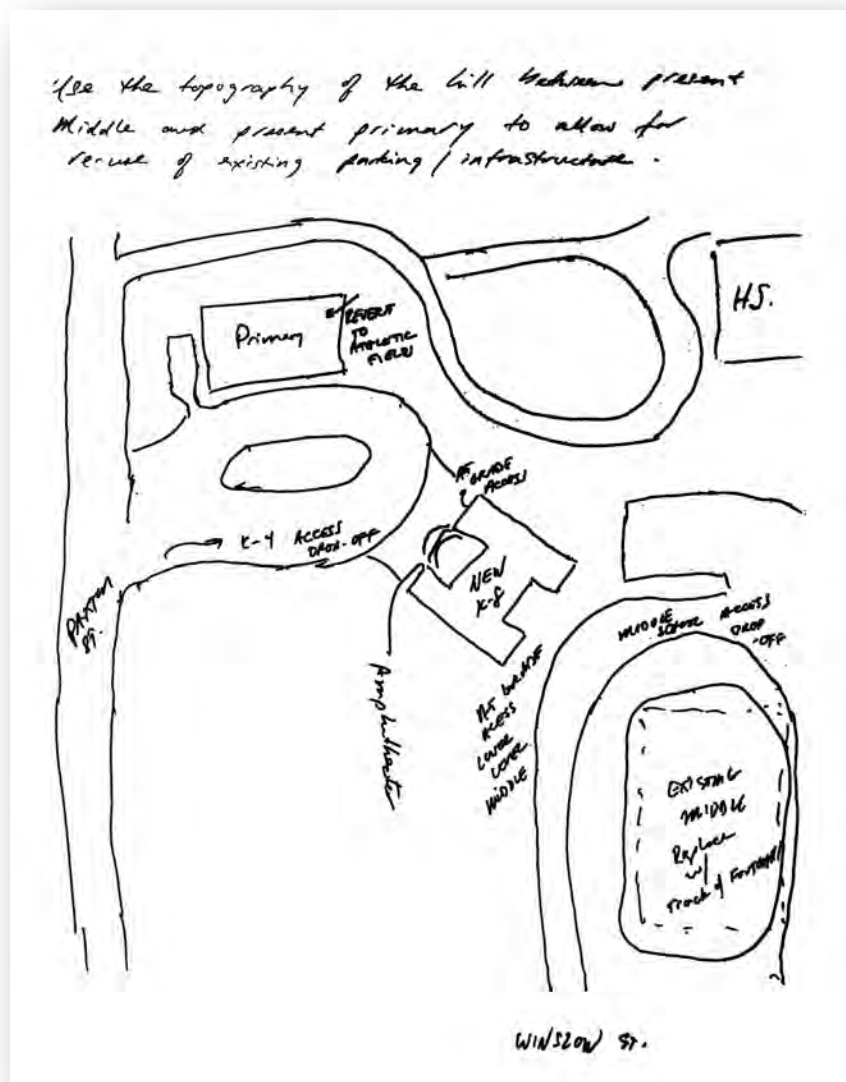 Use the topography of the hill between present
Middle and present primary to allow for
re-use of existing parking / infrastructure.
H.S.
Primary
REVERT
TO
ATHLETIC
FIELD
AT
GRADE
ACCESS
K-4 ACCESS
DROP-OFF
NEW
K-8
PAXTON
ST.
MIDDLE
SCHOOL
ACCESS
DROP
-OFF
Amphitheater
AT GRADE
ACESS
LOWER
LEVEL
MIDDLE
EXISTING
MIDDLE
Replace
w/
Track & Football
WINSLOW ST.